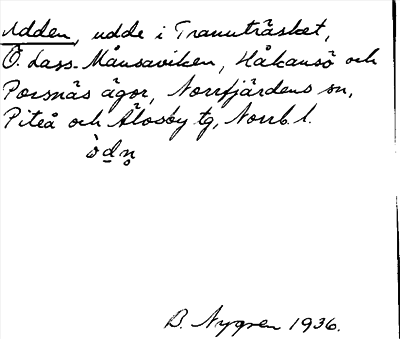 Udden, udde i Trannträsket,
Ö. Lass-Månsaviken, Håkansö och
Porsnäs ägor, Norrfjärdens sn,
Piteå och Älvsby tg, Norrb. l.
B. Nygren 1936.